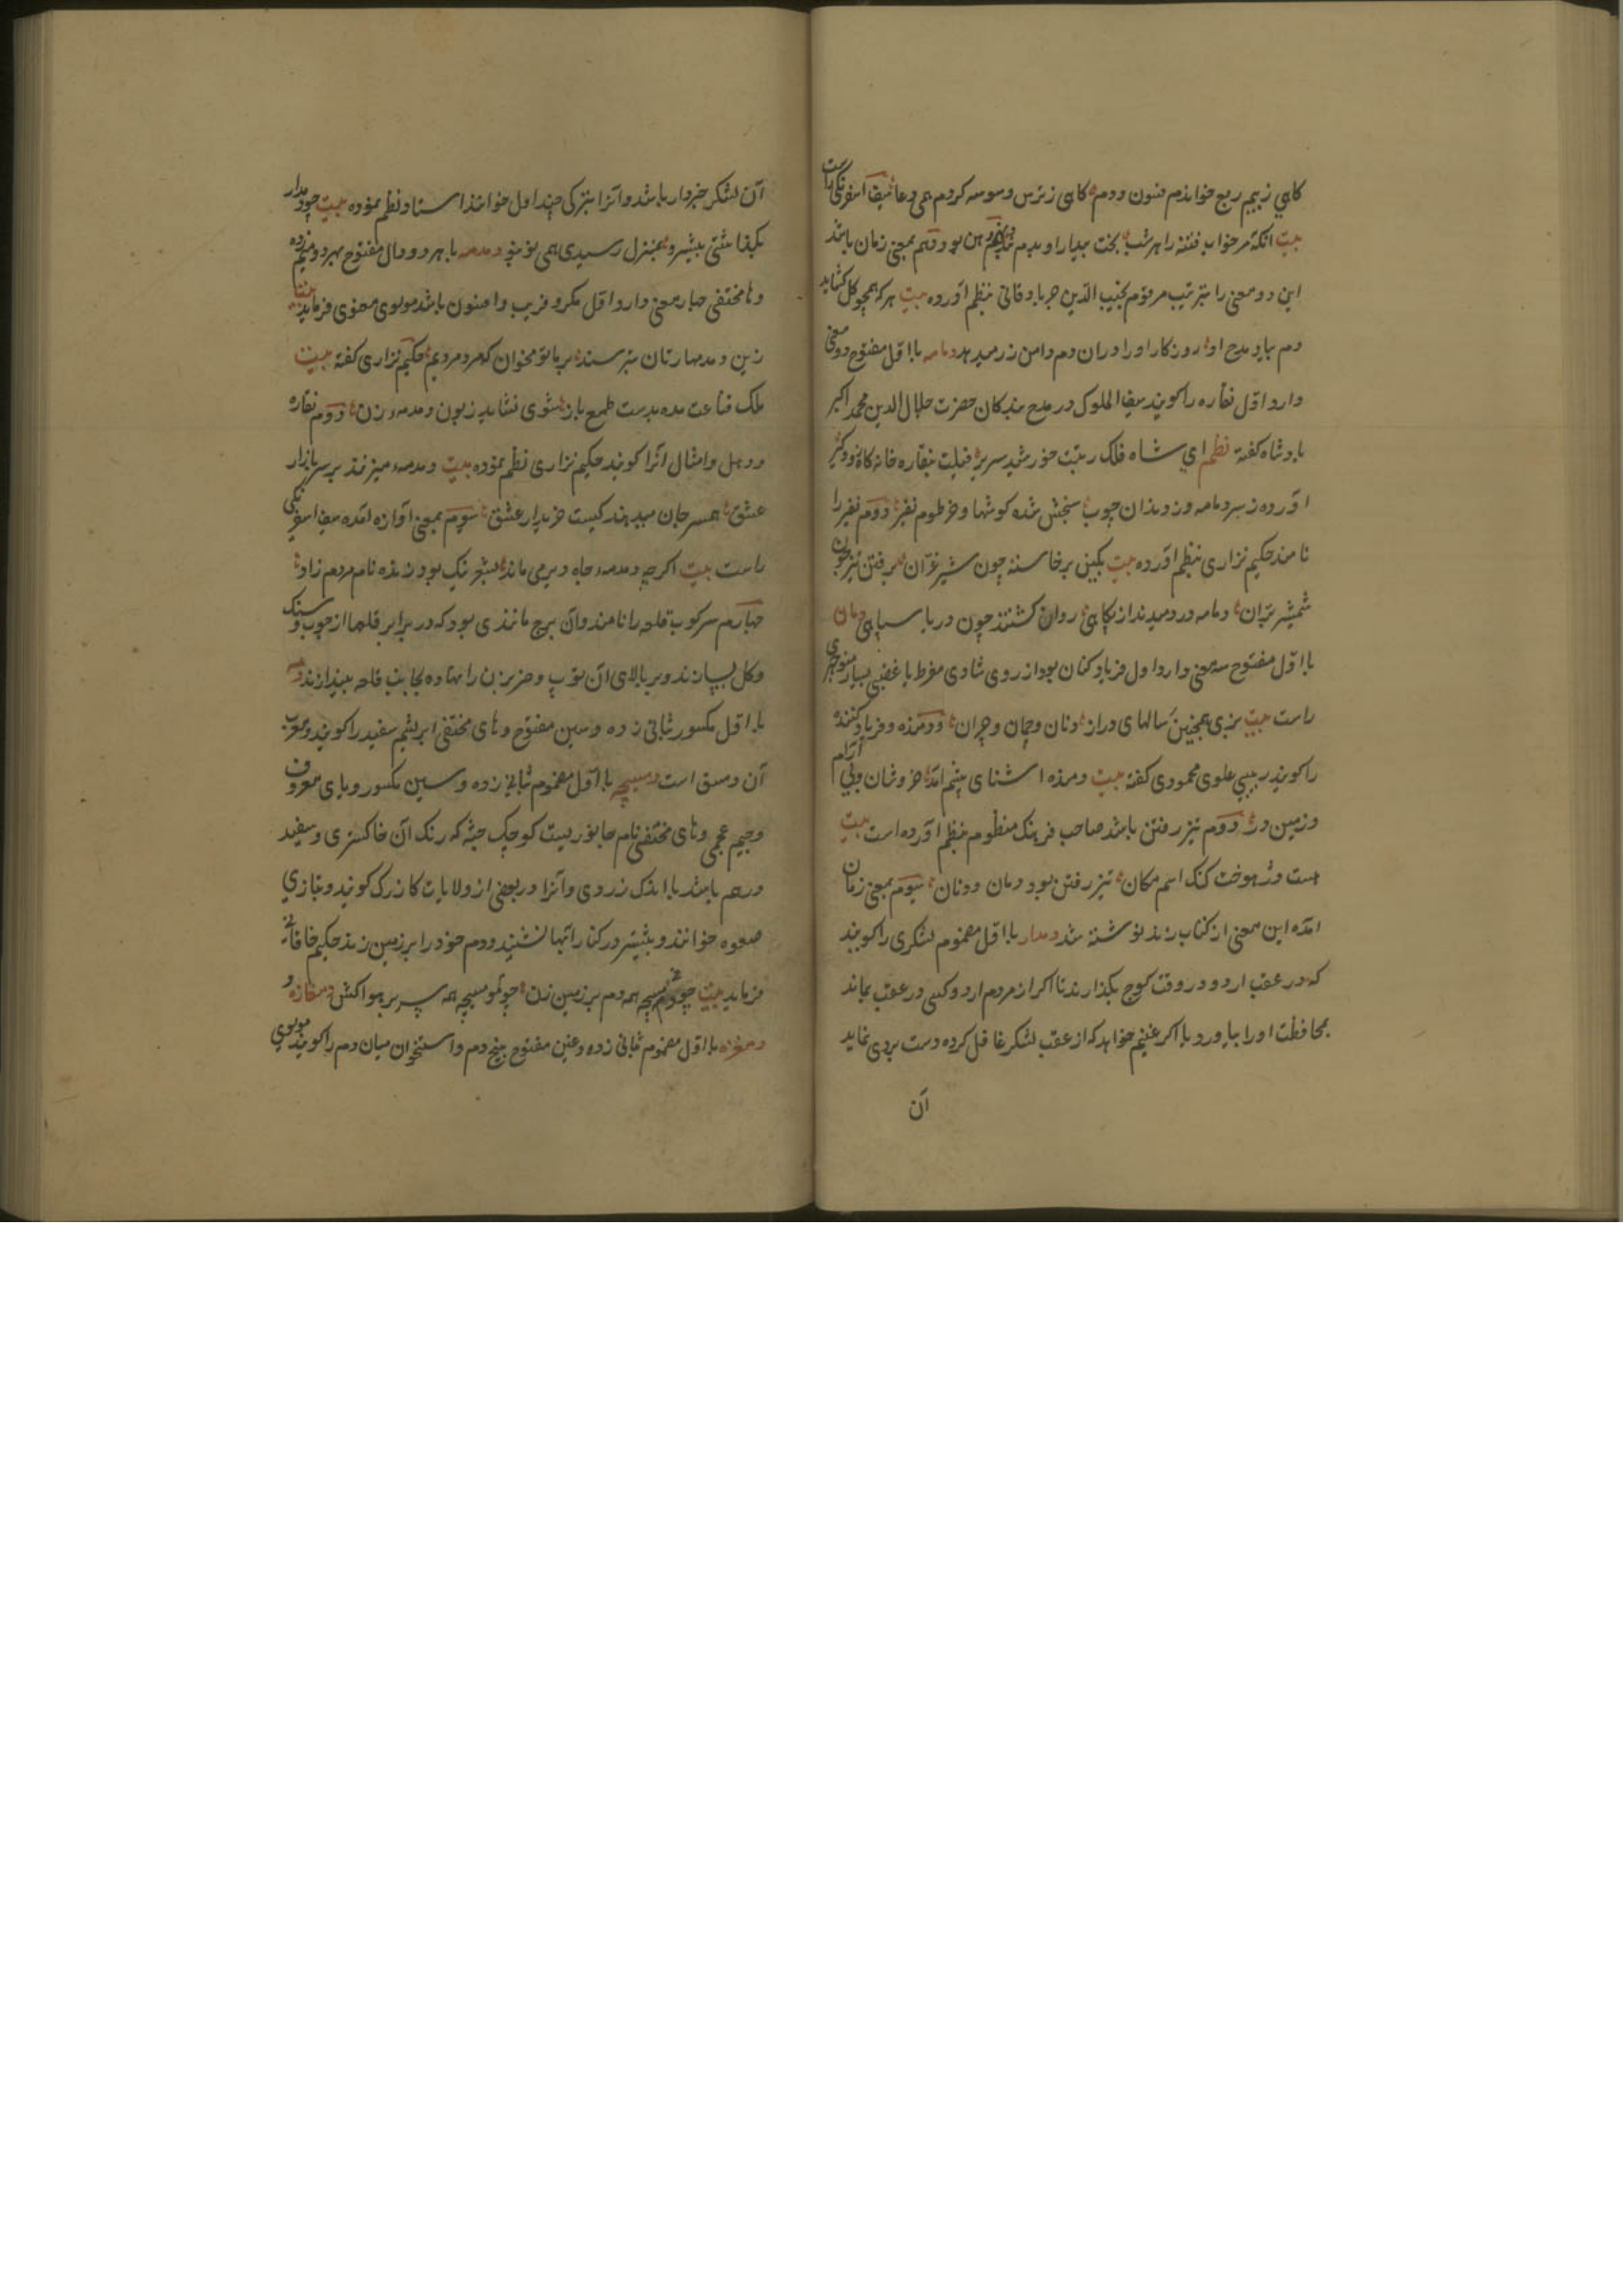 کاهی ز بیم ربع خواندم فسون و دم کاهی ز ترس وسوسه کردم همی دعا سیف اسفرنکی راست
بیت انکه مر خواب فتنه را هر شب بخت بیدار او بدم دهن بود دهم بمعنی زمان باشد
این دو معنی را بترتیب مرقوم نجیب الدین جربادقانی بنظم آورده بیت هر که همچو کل کشاید
دم بیاد مدح او روزکار او را دران دم دامن زر میدهد دمامه با اول مفتوح دو معنی
دارد اول نقاره را کویند سیف الملوک در مدح بندکان حضرت جلال الدین محمد اکبر
بادشاه کفته نظم ای شاه فلک رتبت خورشید سریر فیلت بنقاره خانه
آورده ز سر دمامه وز دندان چوب سنجش شده کوشها و خرطوم نفیر دوم نفیر را
نامند حکیم نزاری بنظم آورده بیت بکین برخاسته چون شیر غران برفتن تیز چون
شمشیر بران دمامه در دمیدند از پکاهی روان کشتند چون دریا سپاهی دمان
با اول مفتوح سه معنی دارد اول فریاد کنان بود از روی شادی مفرط یا غضبی بسیار منوچهری
راست بیت بزی همچنین سالهای دراز دنان و چمان و چران دومنده و فریاد کننده
را کویند بیبی علوی محمودی کفته بیت دمنده اشنای بیتم آمد خروشان ولی آرام
وزمین در دوم تیز رفتن باشد صاحب فرهنک منظوم بنظم آورده است بیت
هست دژ هوخت کنک اسم مکان تیز رفتن بود دمان و دنان سیوم بمعنی زمان
آمده این معنی از کتاب زند نوشته شد دمدار با اول مضموم لشکری را کویند
که در عقب اردو در وقت کوچ بکذارند تا اکر از مردم اردو کسی در عقب بماند
بمحافظت او را بیاورد یا اکر غنیم خواهد که از عقب لشکر غافل کرده دست بردی نماید
آن
آن لشکر خبردار باشد و آنرا بترکی چنداول خوانند استاد نظم نموده بیت چو دمدار
بکذاشتی پیشرو بمنزل رسیدی همی نو بنو دمدمه با هر دو دال مفتوح بهر دو میم زده
و ها مختفی چهار معنی دارد اول مکر و فریب و افسون باشد مولوی معنوی فرماید بیت
زین دمدمها زنان بترسند بر ما تو مخوان که مرد مردیم حکیم نزاری کفته بیت
ملک قناعت مده بدست طمع باز شوی نشاید زبون دمدمهء زن دوم نقاره
و دهل و امثال آنرا کویند حکیم نزاری نظم نموده بیت دمدمه میزنند بر سر بازار
عشق همسر جان میدهند کیست خریدار عشق سیوم بمعنی آوازه آمده سیف اسفرنکی
راست بیت اکرچه دمدمهء جاه دیر می ماند بشهر نیک بود زنده نام مردم زاد
چهارم سرکوب قلعه را نامند وان برج مانندی بود که در برابر قلعها از چوب و سنک
و کل بسازند و بر بالای آن توپ و ضربزن را نهاده بجانب قلعه بیندازند دمسه
با اول مکسور بثانی زده و سین مفتوح و های مختفی ابریشم سفید را کویند و معرب
آن دمسق است دمسیچه با اول مضموم بثانی زده و سین مکسور و یای معروف
و جیم عجمی و های مختفی نام جانوریست کوچک جثه که رنک آن خاکستری و سفید
درهم باشد با اندک زردی و آنرا در بعضی از ولایات کازرک کویند و بتازی
صعوه خوانند و بیشتر در کنار آبها نشیند و دم خود را بر زمین زند حکیم خاقانی
فرماید بیت چو دمسیچه همه دم بر زمین زن چو تو مسیچه همه سر بر هوا کش دمغازه و
دمغزه با اول مضموم بثانی زده و غین مفتوح بیخ دم و استخوان میان دم را کویند مولوی